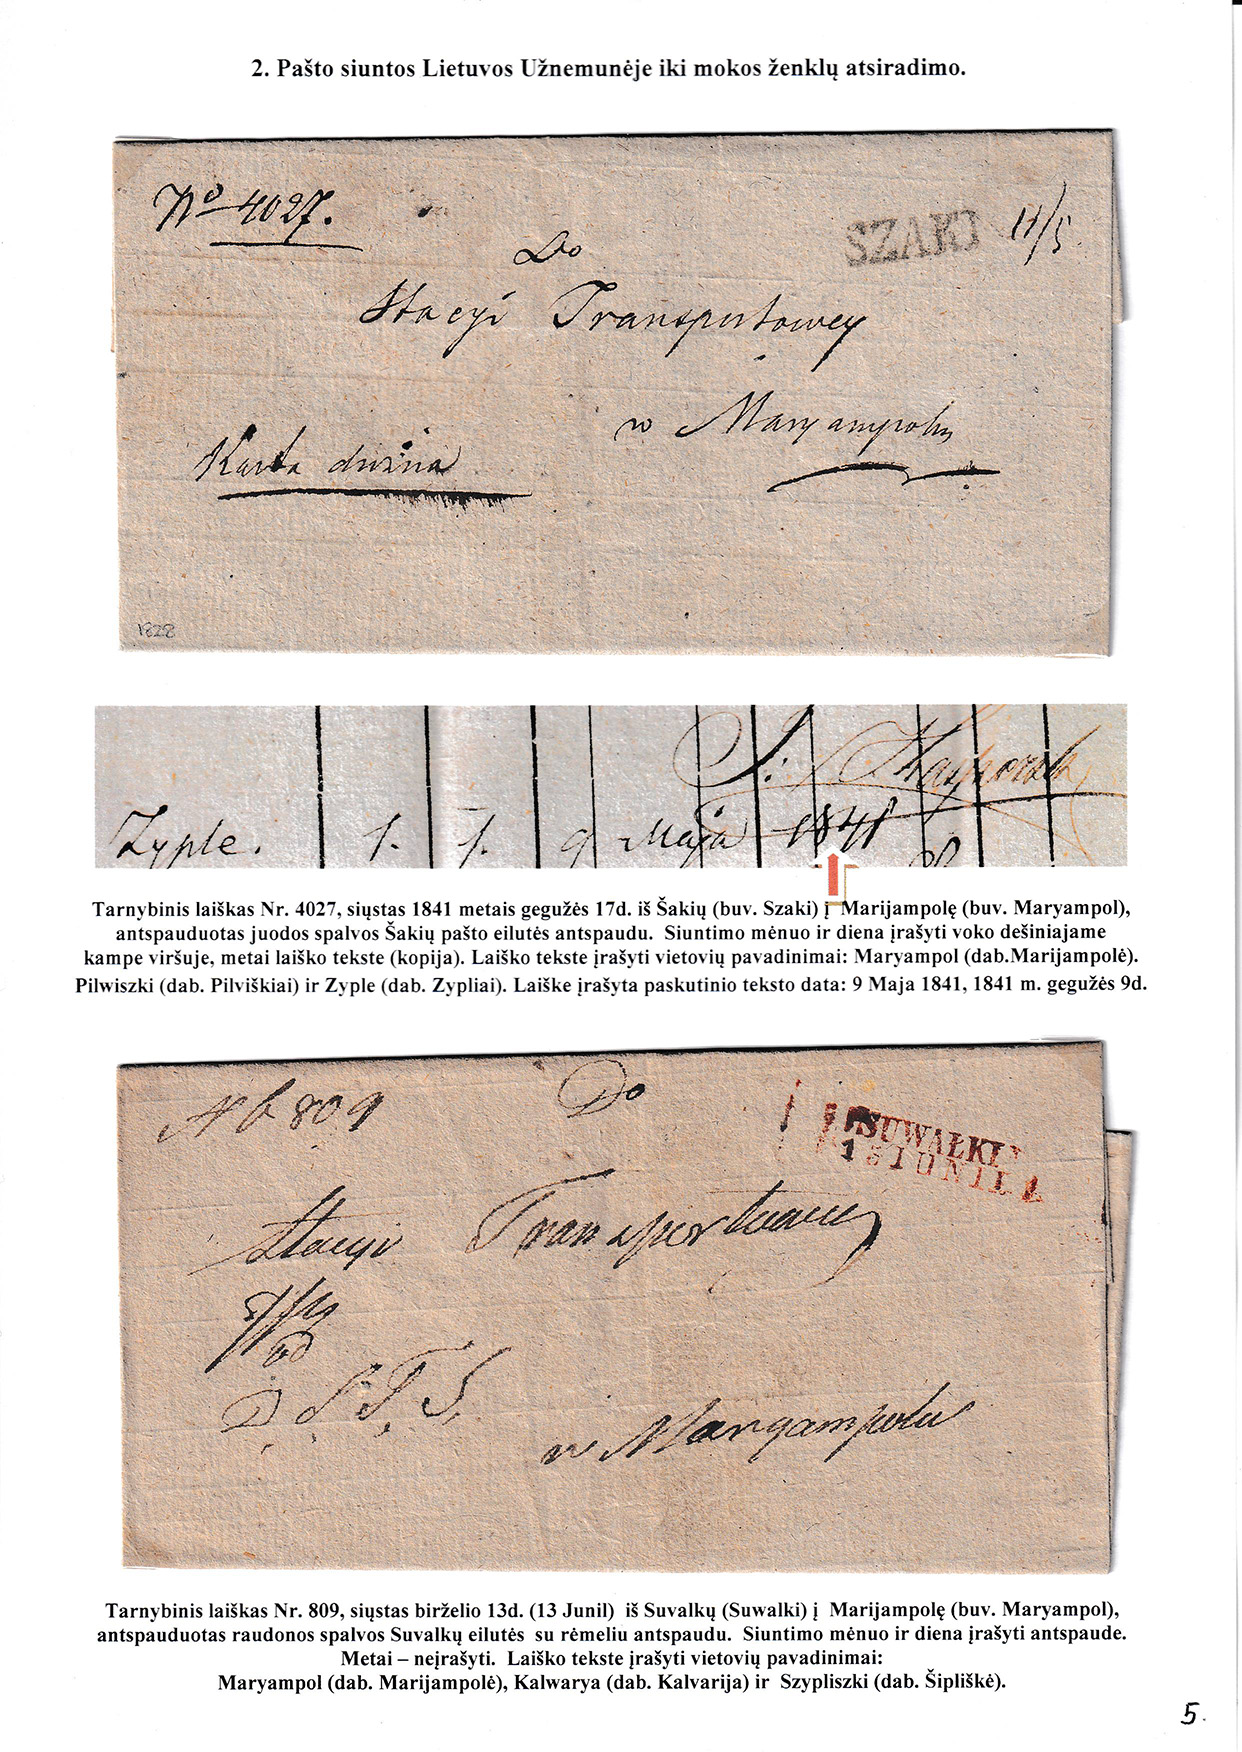 2. Pašto siuntos Lietuvos Užnemunėje iki mokos ženklų atsiradimo.
No 4027.
SZAKI
Do
Stacyi Transportowey
w Maryampolu
Karta dużna
1828
Zyple. 1. 1. 9 Maja 1841
Tarnybinis laiškas Nr. 4027, siųstas 1841 metais gegužės 17d. iš Šakių (buv. Szaki) į Marijampolę (buv. Maryampol),
antspauduotas juodos spalvos Šakių pašto eilutės antspaudu. Siuntimo mėnuo ir diena įrašyti voko dešiniajame
kampe viršuje, metai laiško tekste (kopija). Laiško tekste įrašyti vietovių pavadinimai: Maryampol (dab.Marijampolė).
Pilwiszki (dab. Pilviškiai) ir Zyple (dab. Zypliai). Laiške įrašyta paskutinio teksto data: 9 Maja 1841, 1841 m. gegužės 9d.
809
Do
SUWAŁKI
IUNII
Stacyi Transportowey
od
D. S. T. S.
w Maryampolu
Tarnybinis laiškas Nr. 809, siųstas birželio 13d. (13 Junil) iš Suvalkų (Suwalki) į Marijampolę (buv. Maryampol),
antspauduotas raudonos spalvos Suvalkų eilutės su rėmeliu antspaudu. Siuntimo mėnuo ir diena įrašyti antspaude.
Metai – neįrašyti. Laiško tekste įrašyti vietovių pavadinimai:
Maryampol (dab. Marijampolė), Kalwarya (dab. Kalvarija) ir Szypliszki (dab. Šipliškė).
5.